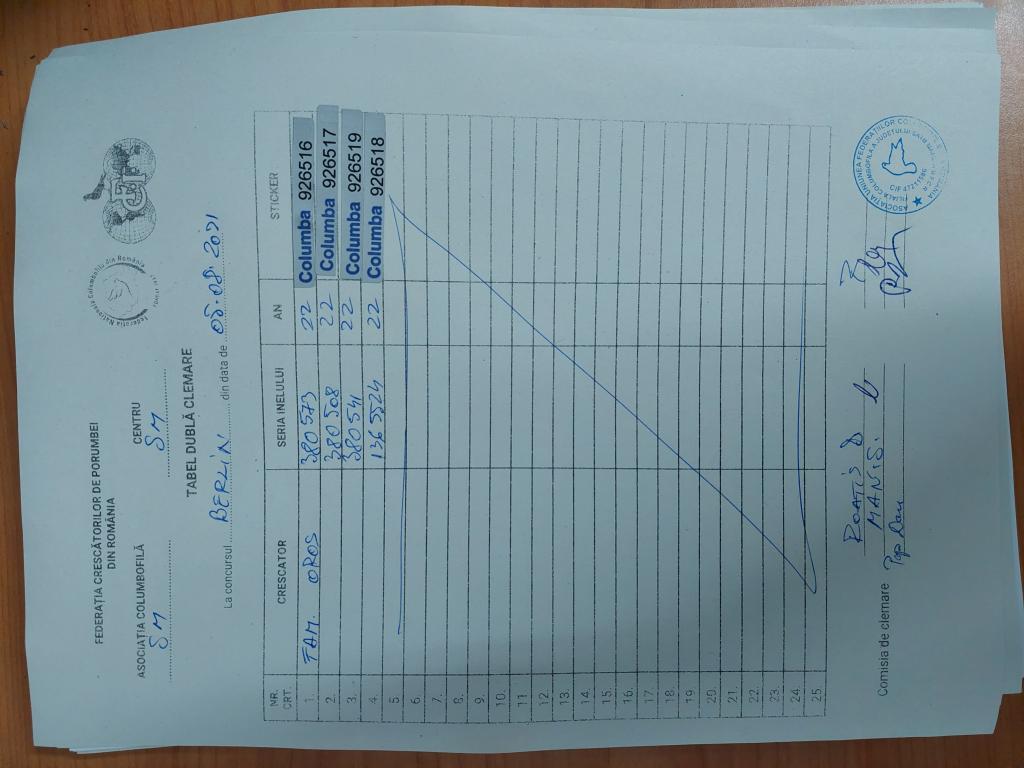 FEDERAȚIA CRESCĂTORILOR DE PORUMBEI
DIN ROMÂNIA
ASOCIAȚIA COLUMBOFILĂ CENTRU
SM SM
TABEL DUBLĂ CLEMARE
La concursul BERLIN din data de 05.08.2021
NR. CRT. CRESCATOR SERIA INELULUI AN STICKER
1. FAM. OROS 380573 22 Columba 926516
2. 380508 22 Columba 926517
3. 380541 22 Columba 926519
4. 1365524 22 Columba 926518
5.
6.
7.
8.
9.
10.
11
12.
13.
14.
15.
16.
17.
18.
19
20.
21.
22.
23.
24.
25.
Comisia de clemare
MANIS.
Pop Dan
CIF 47211586